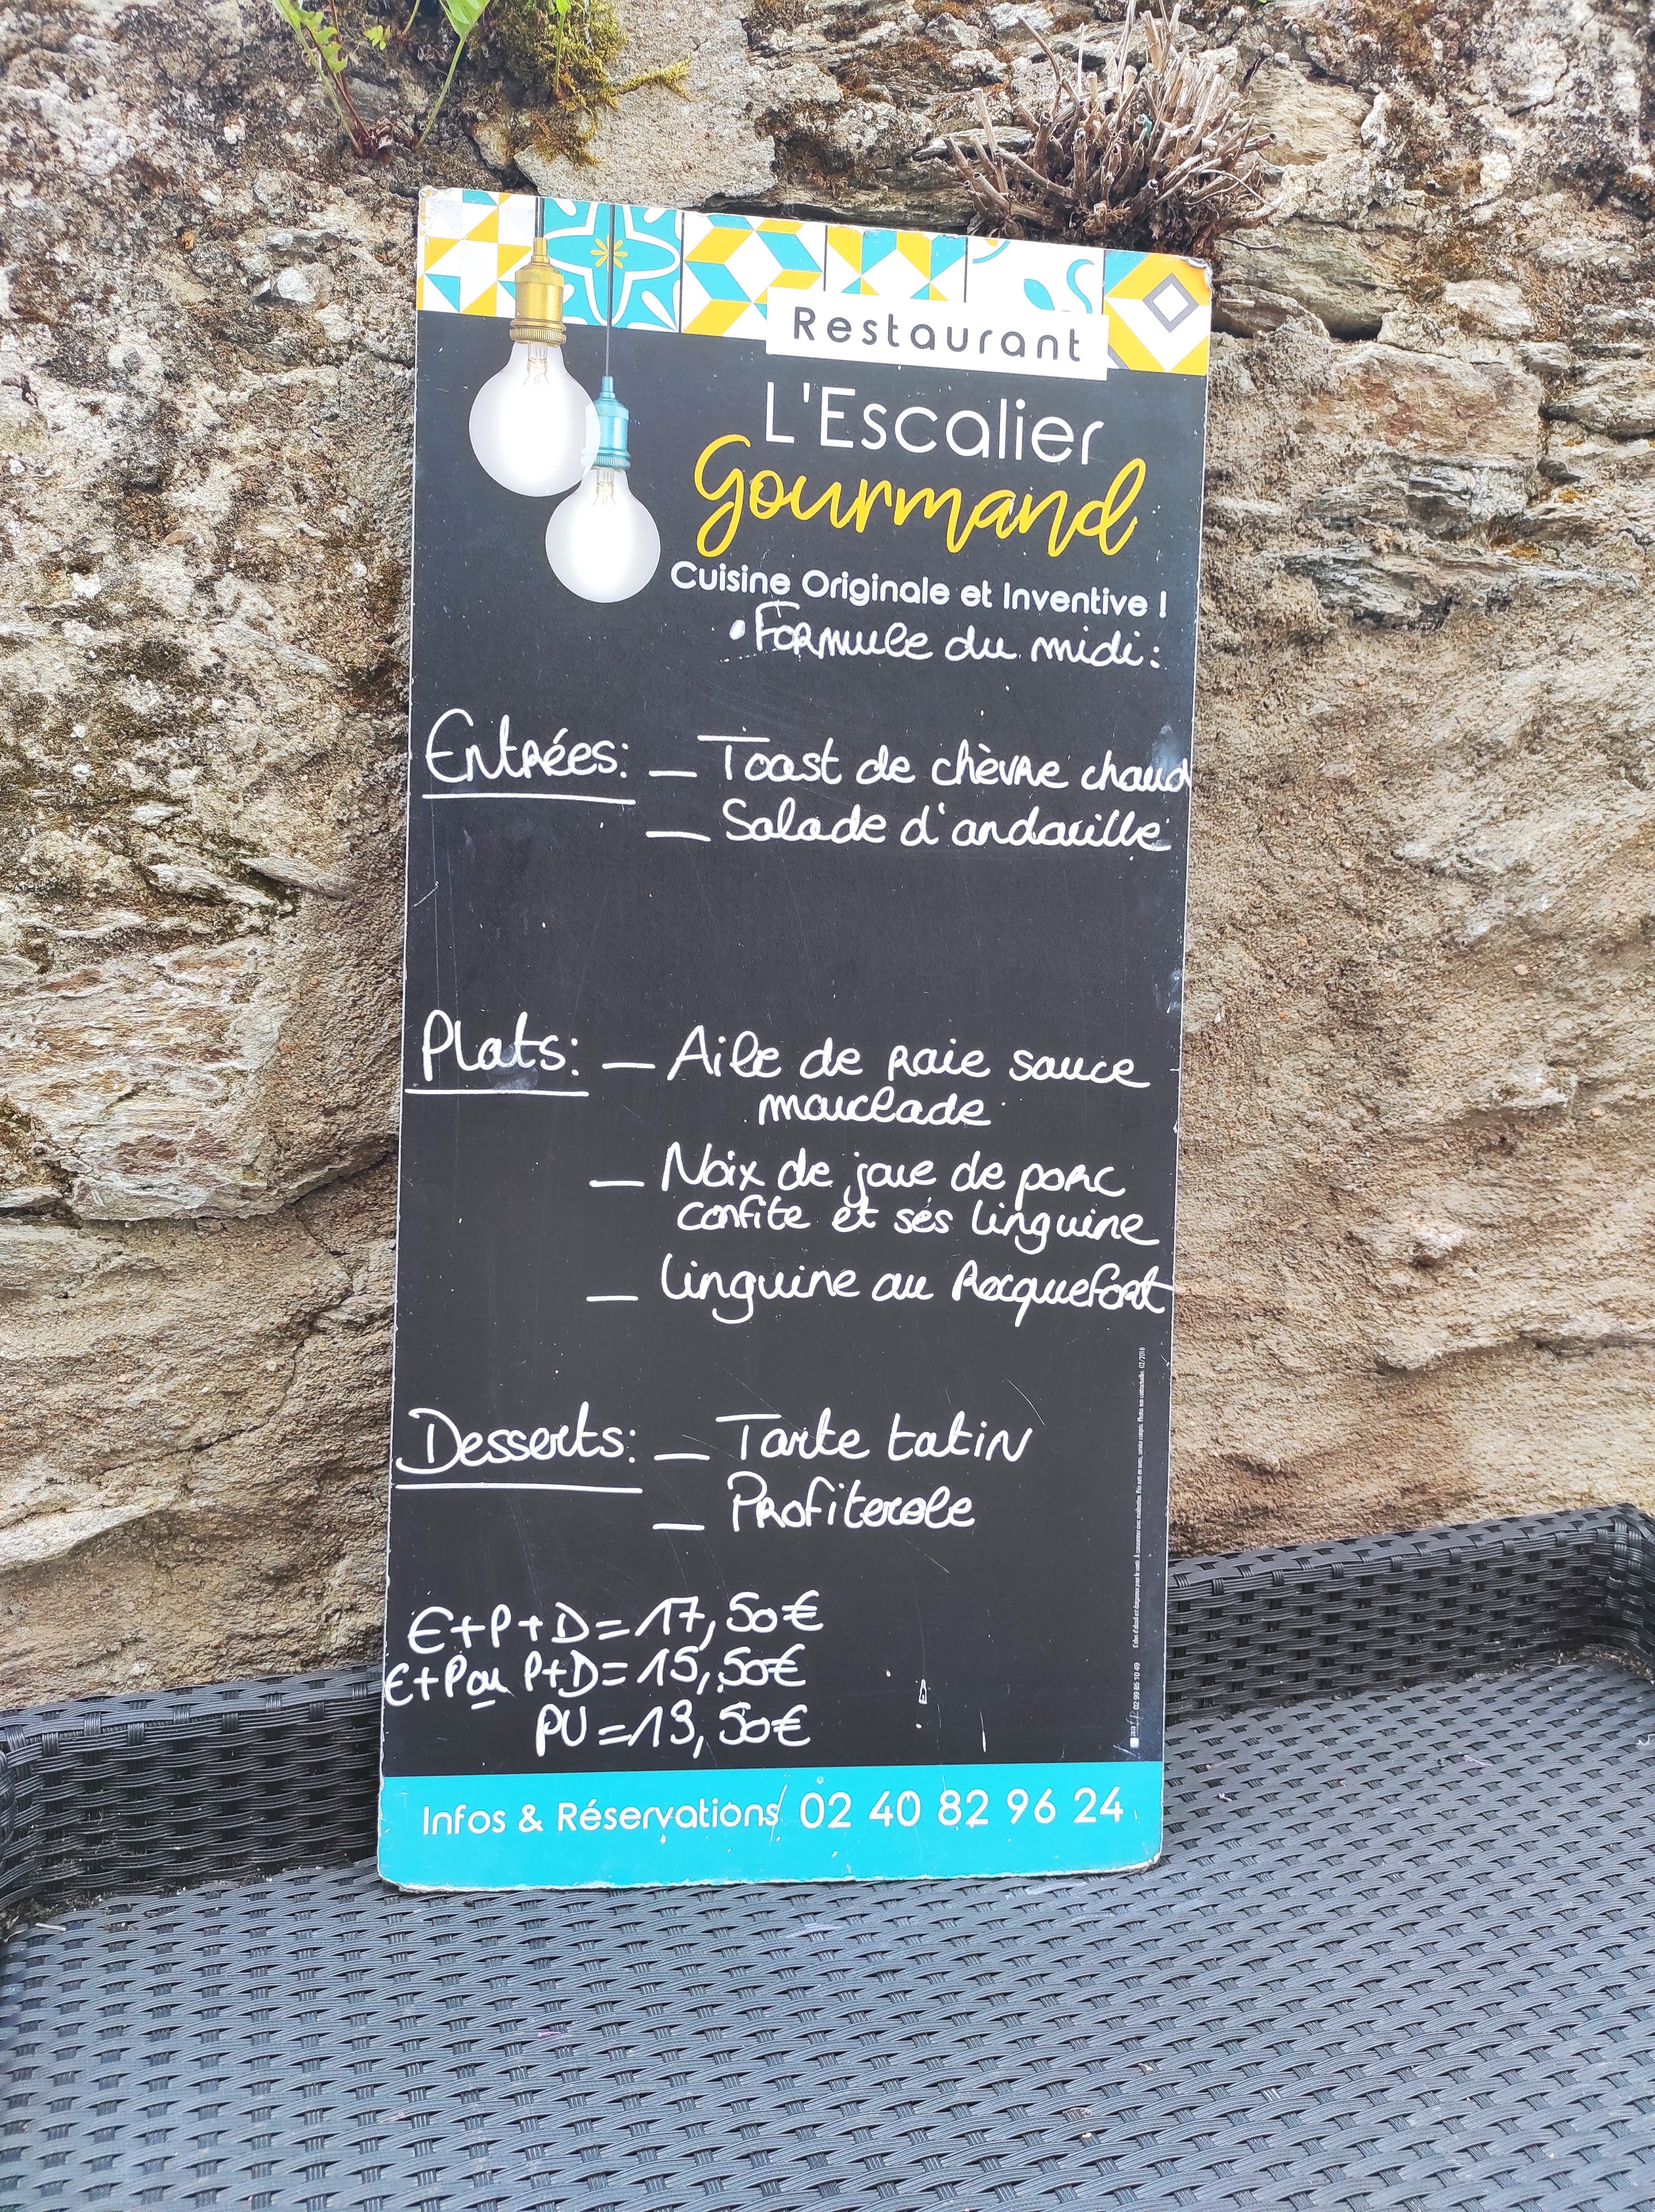 Restaurant
L'Escalier
Gourmand
Cuisine Originale et Inventive !
• Formule du midi :
Entrées : — Toast de chèvre chaud
— Salade d'andouille
Plats : — Aile de raie sauce
mouclade
— Noix de joue de porc
confite et ses linguine
— linguine au Rocquefort
Desserts : — Tarte tatin
— Profiterole
E+P+D = 17,50€
E+P ou P+D = 15,50€
PU = 13,50€
Infos & Réservations 02 40 82 96 24